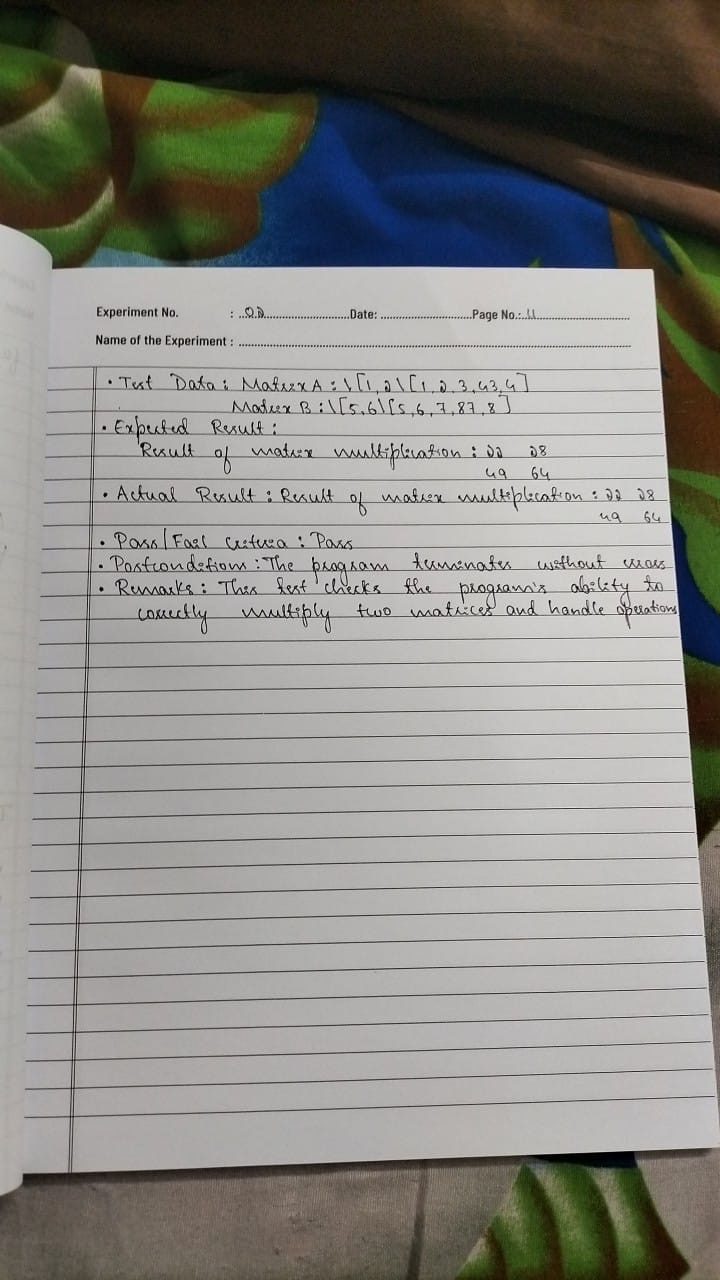 Experiment No. : 02 Date: Page No.: 11
Name of the Experiment :
• Test Data : Matrix A : \[1,2\[1,2,3,43,4]
Matrix B : \[5,6\[5,6,7,87,8]
• Expected Result :
Result of matrix multiplication : 22 28
49 64
• Actual Result : Result of matrix multiplication : 22 28
49 64
• Pass/Fail Criteria : Pass
• Postcondition : The program terminates without errors
• Remarks : This test checks the program's ability to
correctly multiply two matrices and handle operations